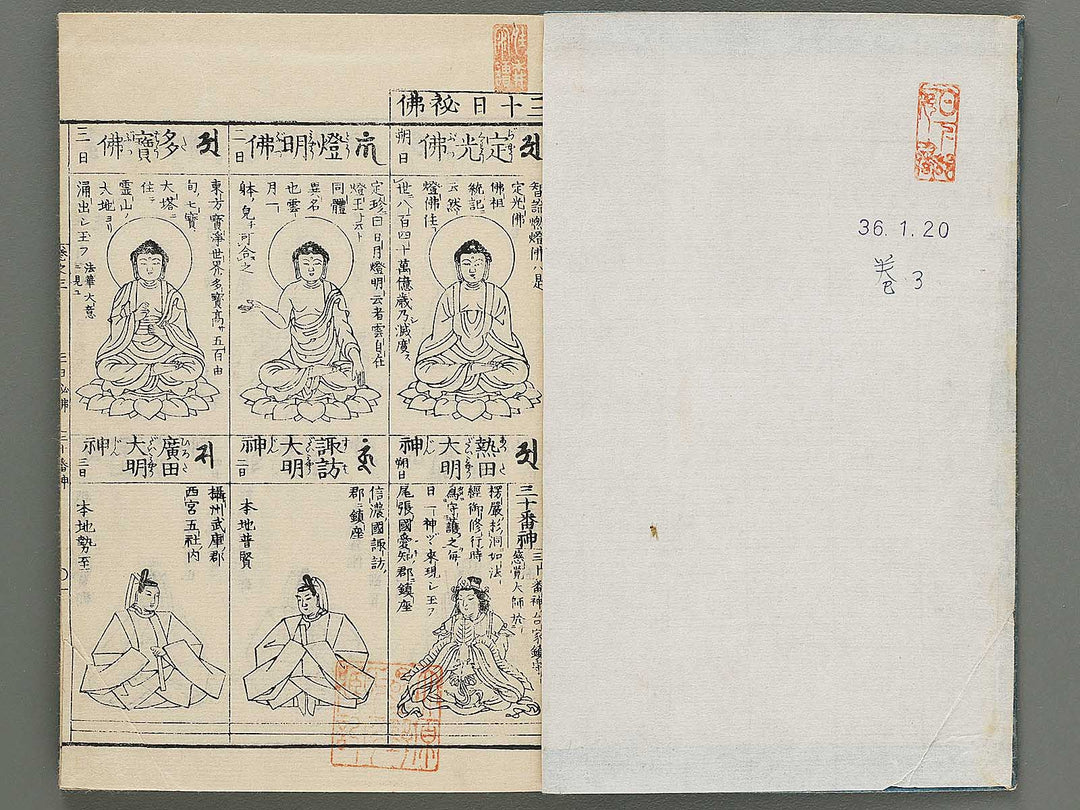 36.1.20
巻3
三十日祕佛
定光佛
朔日
智論燃燈佛ハ是
定光佛
佛祖
統記ニ
云然
燈佛住
世八百四十萬億歳乃滅度ス
燈明佛
二日
定珍曰日月燈明云者雲自在
燈王ト云
同體
異名
也雲
月一
躰
多寶佛
三日
東方寶淨世界多寶高サ五百由
旬七寶
大塔ニ
住
靈山ノ
大地ヨリ
涌出シ玉フ
法華大意
ニ見ユ
熱田大明神
朔日
三十番神
楞嚴杉洞如法
經御修行時
爲守護之毎
日一神ヅヽ來現シ玉フ
尾張國愛知郡鎮座
諏訪大明神
二日
信濃國諏訪
郡ニ鎮座
本地普賢
廣田大明神
三日
攝州武庫郡
西宮五社ノ内
本地勢至